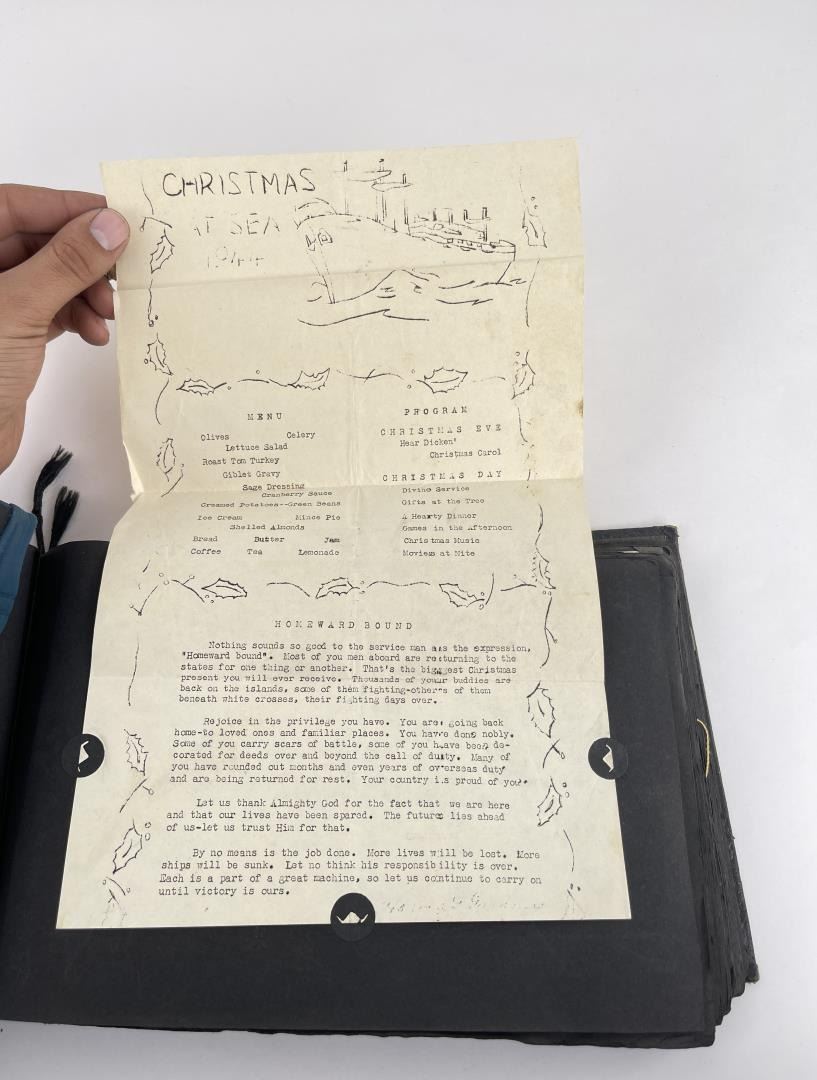 CHRISTMAS
AT SEA
1944
MENU
Olives Celery
Lettuce Salad
Roast Tom Turkey
Giblet Gravy
Sage Dressing
Cranberry Sauce
Creamed Potatoes--Green Beans
Ice Cream Mince Pie
Shelled Almonds
Bread Butter Jam
Coffee Tea Lemonade
PROGRAM
CHRISTMAS EVE
Hear Dicken'
Christmas Carol
CHRISTMAS DAY
Divine Service
Gifts at the Tree
A Hearty Dinner
Games in the Afternoon
Christmas Music
Movies at Nite
HOMEWARD BOUND
Nothing sounds so good to the service man as the expression,
"Homeward bound". Most of you men aboard are returning to the
states for one thing or another. That's the biggest Christmas
present you will ever receive. Thousands of your buddies are
back on the islands, some of them fighting-others of them
beneath white crosses, their fighting days over.
Rejoice in the privilege you have. You are going back
home-to loved ones and familiar places. You have done nobly.
Some of you carry scars of battle, some of you have been de-
corated for deeds over and beyond the call of duty. Many of
you have rounded out months and even years of overseas duty
and are being returned for rest. Your country is proud of you.
Let us thank Almighty God for the fact that we are here
and that our lives have been spared. The future lies ahead
of us-let us trust Him for that.
By no means is the job done. More lives will be lost. More
ships will be sunk. Let no think his responsibility is over.
Each is a part of a great machine, so let us continue to carry on
until victory is ours.